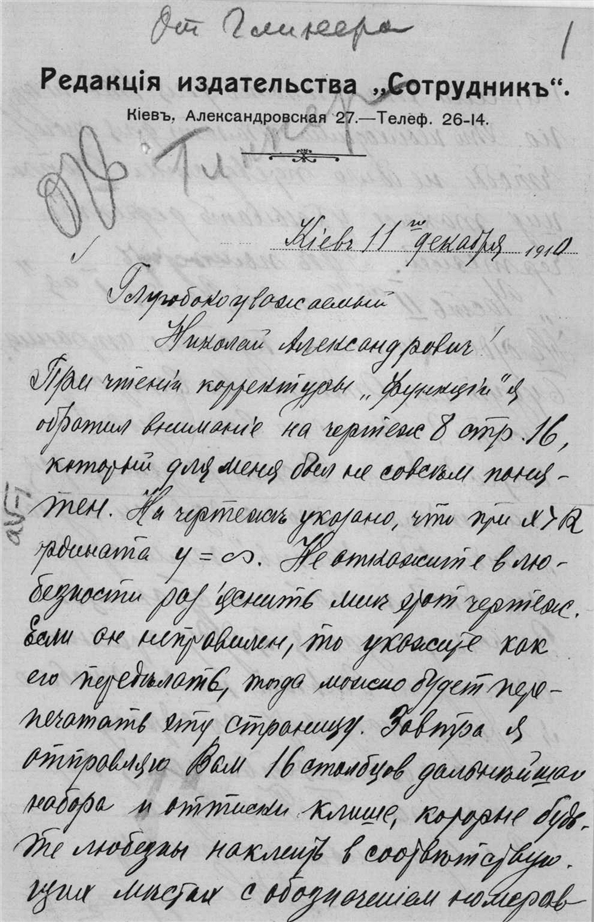 От Глинера
1
Редакція издательства „Сотрудникъ“.
Кіевъ, Александровская 27.—Телеф. 26-14.
Кіевъ 11го декабря 1910
Глубокоуважаемый
Николай Александровичъ!
При чтеніи корректуры „Функціи“ я
обратил вниманіе на чертеж 8 стр. 16,
который для меня был не совсѣм поня-
тен. На чертежѣ указано, что при
ордината y = ∞. Не откажите в лю-
безности раз'яснить мнѣ этот чертеж.
Если он неправилен, то укажите как
его передѣлать, тогда можно будет пере-
печатать эту страницу. Завтра я
отправляю Вам 16 столбцов дальнѣйшаго
набора и оттиски клише, которые будь-
те любезны наклеить в соотвѣтствую-
щих мѣстах с обозначеніем номеров